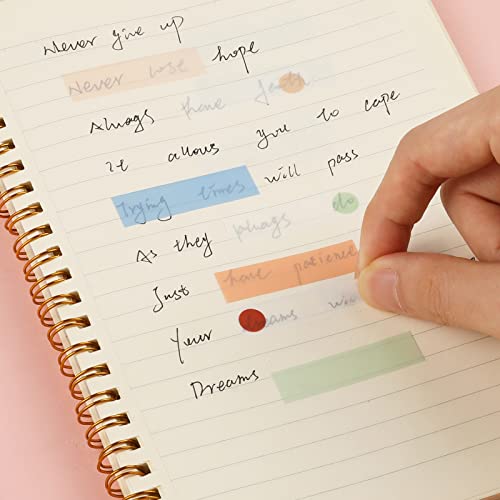 Never give up
Never lose hope
Always have faith
it allows you to cape
Trying times will pass
As they phags do
Just have patience
Your dreams wi
Dreams